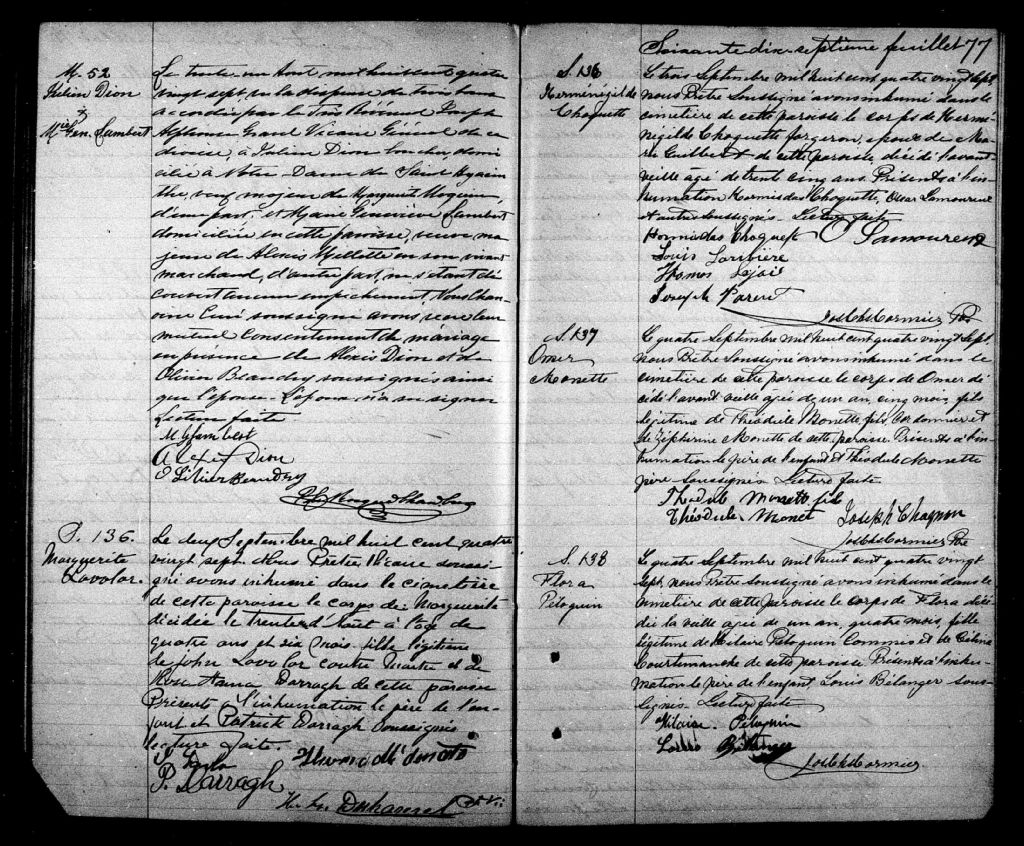 M. 52
Julien Dion
&
Gen. Lambert
Le trente un Aout mil huit cent quatre
vingt sept, vu la dispense de trois bans
accordée par le Très Révérend Joseph
Alphonse Gravel Vicaire Général de ce
diocèse, à Julien Dion boucher, domi
cilié à Notre-Dame de Saint Hyacin
the, veuf majeur de Marguerite
d'une part; et Geneviève Lambert
domiciliée en cette paroisse, veuve ma
jeure de Alexis Millette en son vivant
marchand, d'autre part, ne s'étant dé
couvert aucun empêchement Nous Chanoi
ne Curé soussigné avons reçu leur
mutuel consentement de mariage
en présence de Alexis Dion et de
Olivier Beaudry soussignés ainsi
que l'épouse. L'époux n'a su signer
Lecture faite
Alexis Dion
Olivier Beaudry
S. 136.
Marguerite
Lovolor.
Le deux Septembre mil huit cent quatre
vingt sept. Nous Prêtre Vicaire soussi
gné avons inhumé dans le cimetière
de cette paroisse le corps de Marguerite
décédée le trente d'Août à l'âge de
quatre ans et six mois fille légitime
de John Lovolor contre maitre et de
Rose Anna Darragh de cette paroisse
Présents à l'inhumation le père de l'en
fant et Patrick Darragh Soussignés
lecture faite.
P. Darragh
Soixante dix-septième feuillet 77
S. 136
Herménégilde
Choquette
Le trois Septembre mil huit cent quatre vingt sept
nous Prêtre Soussigné avons inhumé dans le
cimetière de cette paroisse le corps de Hermé
négilde Choquette forgeron, époux de Ma
rie Guilbert de cette paroisse, décédé l'avant
veille agé de trent cinq ans. Présents à l'in
humation Hormisdas Choquette, Oscar Lamoureux
et autres soussignés. Lecture faite
Hormisdas Choquet O Lamoureux
Louis Larivière
Thomas Lajoie
Joseph Parent
Jos Chs Cormier Ptre
S. 137
Omer
Monette
Le quatre Septembre mil huit cent quatre vingt sept.
Nous Prêtre Soussigné avons inhumé dans le
cimetière de cette paroisse le corps de Omer dé
cédé l'avant veille agé d'un an, cinq mois, fils
légitime de Théodule Monette fils, cordonnier et
de Zéphirine Monette de cette paroisse. Présents à l'in
humation le père de l'enfant et Théodule Monette
père soussignés Lecture faite
Théodule Monette fils
Théodule Monet Joseph Chagnon
Jos Chs Cormier Ptre
S. 138
Flora
Péloquin
Le quatre Septembre mil huit cent quatre vingt
sept, nous Prêtre Soussigné avons inhumé dans le
cimetière de cette paroisse le corps de Flora décé
dée la veille agée de un an, quatre mois, fille
légitime de Hilaire Péloquin Commis et de Célina
Courtemanche de cette paroisse. Présents à l'inhu-
mation le père de l'enfant, Louis Bélanger sous-
signés. Lecture faite
Hilaire Péloquin
Louis Bélanger
Jos Chs Cormier